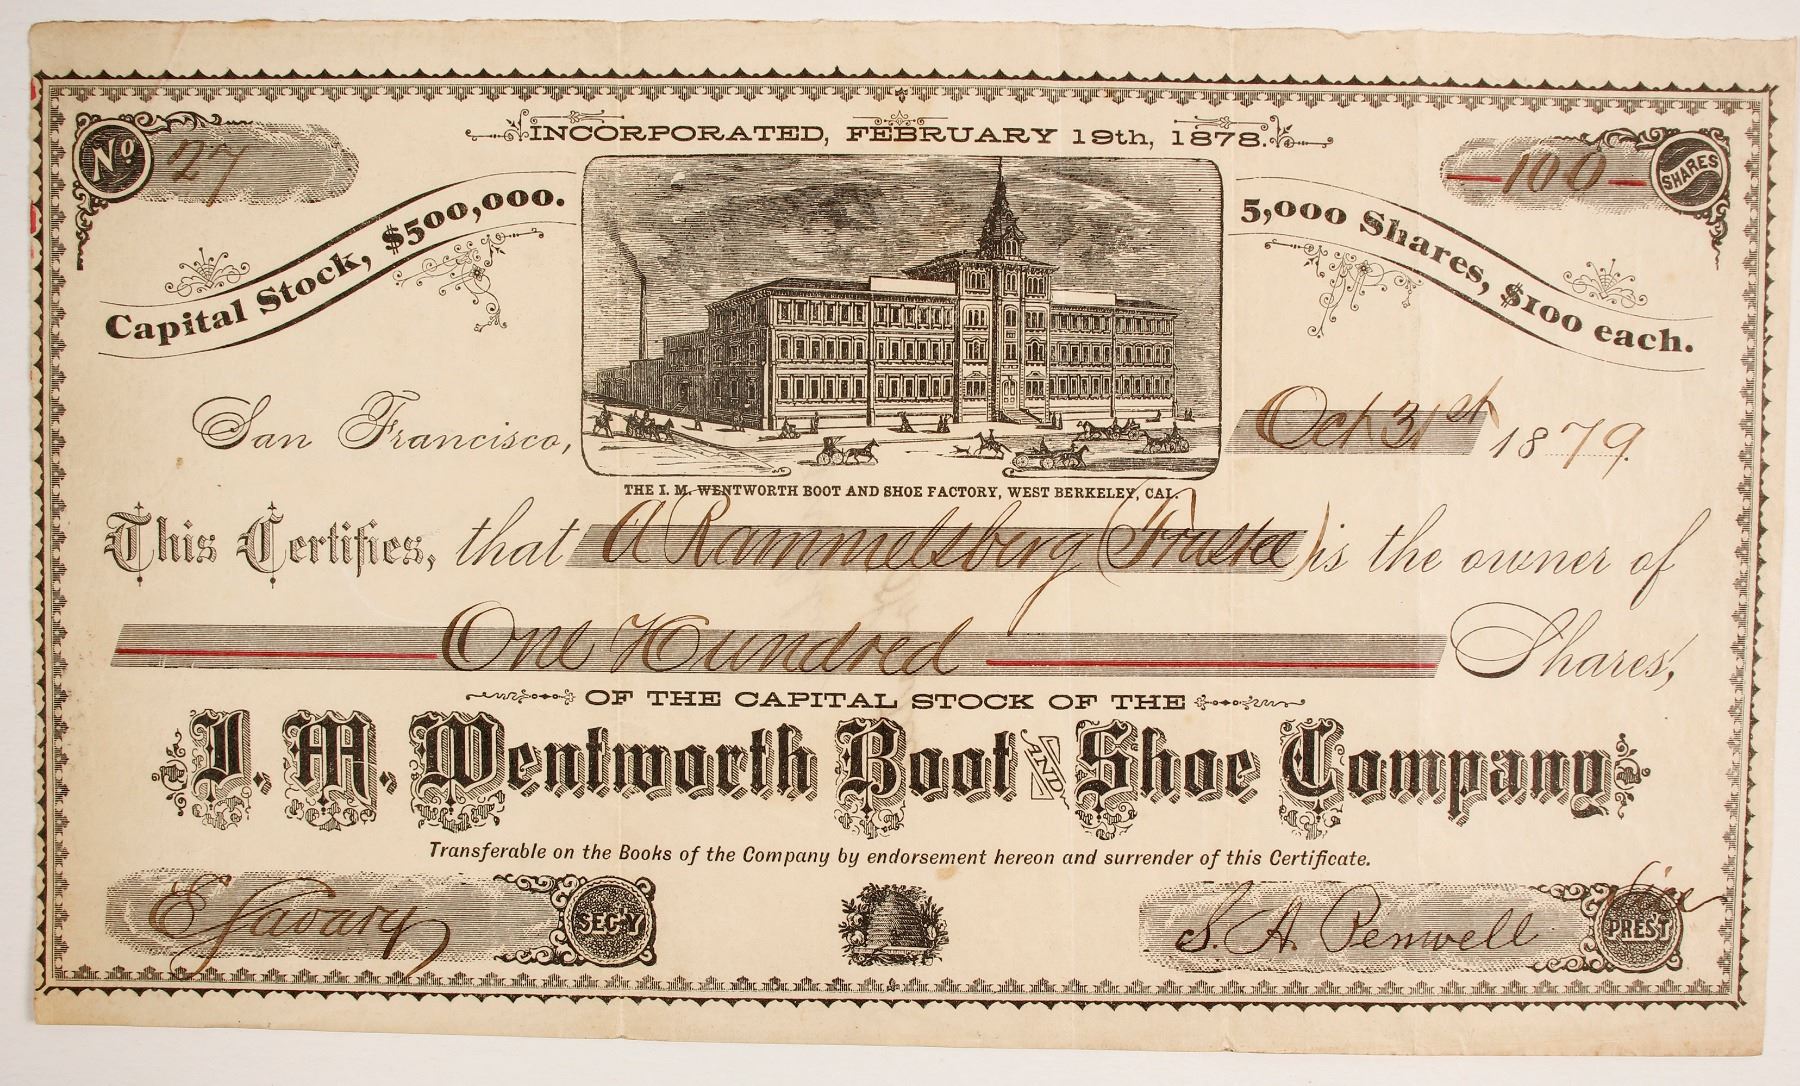 INCORPORATED, FEBRUARY 19th, 1878.
No 27
100 SHARES
Capital Stock, $500,000.
5,000 Shares, $100 each.
San Francisco, Oct 31st 1879.
THE I. M. WENTWORTH BOOT AND SHOE FACTORY, WEST BERKELEY, CAL.
This Certifies, that A Rammelsberg (Trustee) is the owner of
One Hundred Shares,
OF THE CAPITAL STOCK OF THE
I. M. Wentworth Boot AND Shoe Company
Transferable on the Books of the Company by endorsement hereon and surrender of this Certificate.
E Savary SEC'Y
S. A. Penwell Vice PREST